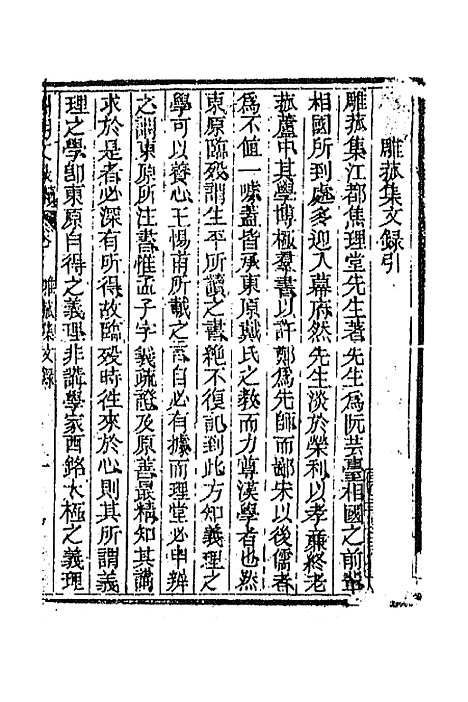 雕菰集文録引
雕菰集江都焦理堂先生著先生爲阮芸臺相國之前輩
相國所到處多迎入幕府然先生淡於榮利以孝廉終老
菰蘆中其學博極羣書以許鄭爲先師而鄙宋以後儒者
爲不值一嗛蓋皆承東原戴氏之教而力尊漢學者也然
東原臨殁謂生平所讀之書絶不復記到此方知義理之
學可以養心王惕甫所載之言自必有據而理堂必申辨
之謂東原所注書惟孟子字義疏證及原善最精知其講
求於是者必深有所得故臨殁時往來於心則其所謂義
理之學卽東原自得之義理非講學家西銘太極之義理
雕菰集文録